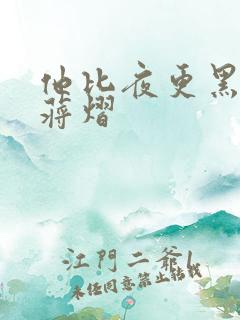 他比夜更黑
蒋熠
江門二爺l
未经同意禁止转载